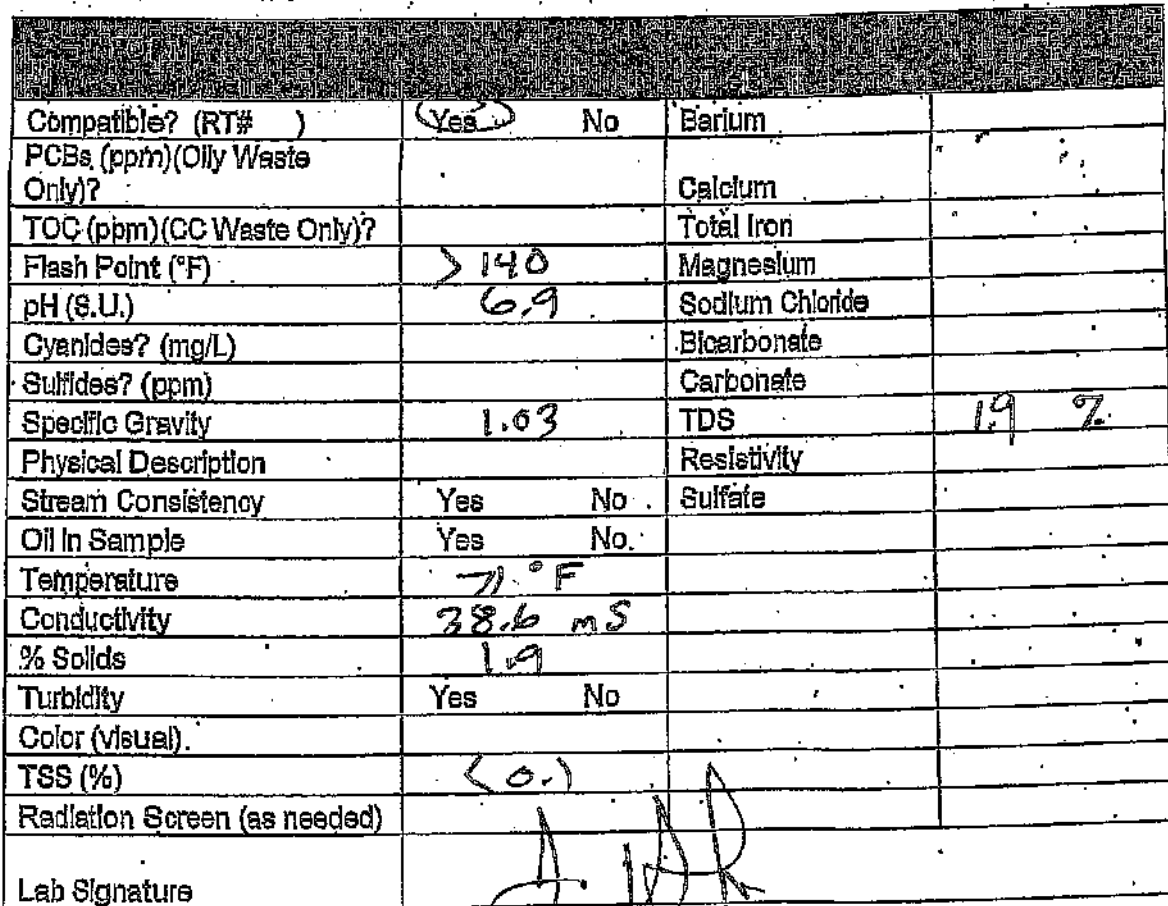 Compatible? (RT# ) Yes No Barium
PCBs (ppm)(Oily Waste
Only)? Calcium
TOC (ppm)(CC Waste Only)? Total Iron
Flash Point (°F) >140 Magnesium
pH (S.U.) 6.9 Sodium Chloride
Cyanides? (mg/L) Bicarbonate
Sulfides? (ppm) Carbonate
Specific Gravity 1.03 TDS 1.9 %
Physical Description Resistivity
Stream Consistency Yes No Sulfate
Oil in Sample Yes No
Temperature 71 °F
Conductivity 38.6 mS
% Solids 1.9
Turbidity Yes No
Color (visual)
TSS (%) <0.1
Radiation Screen (as needed)
Lab Signature